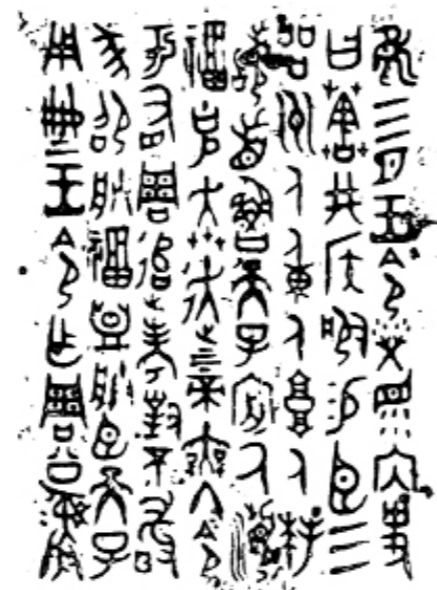 隹三月王令榮眔内史
曰井侯服易臣三
品州人重人墉人拜
稽首魯天子厥瀕
福克奔走上下帝無冬令
于有周追考對不敢
墜卲朕福盟朕臣天子
用典王令乍周公彝